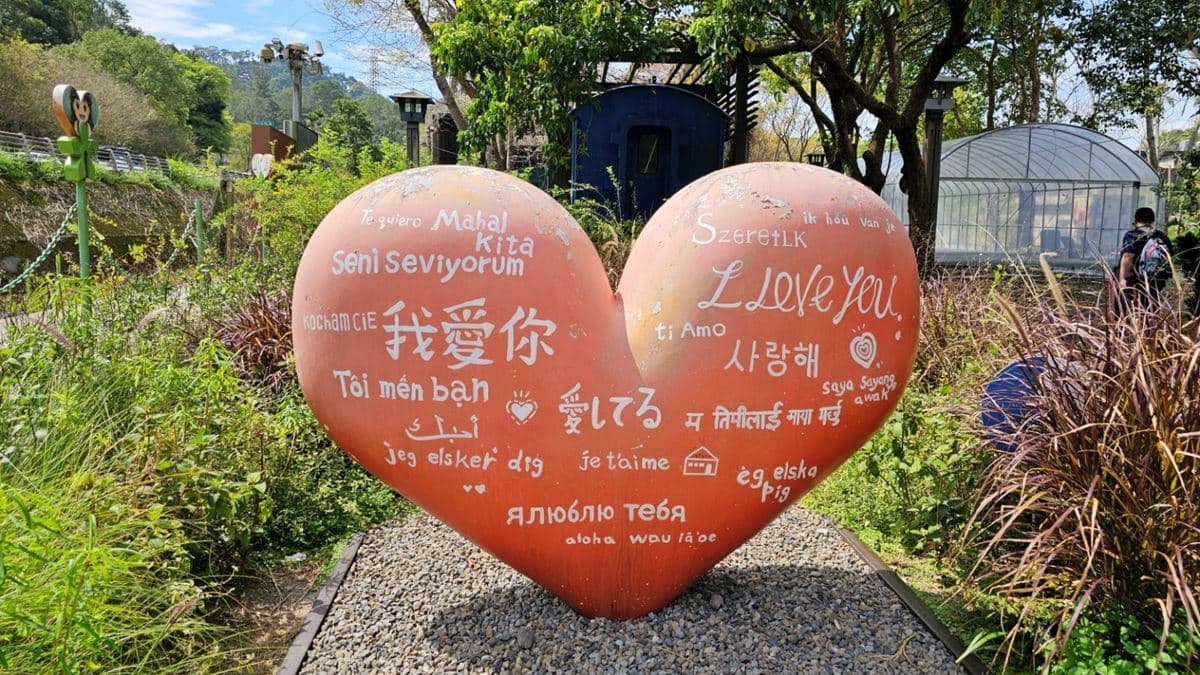 Te quiero
Mahal
Kita
Seni Seviyorum
Kocham CiE
我愛你
Tôi mến bạn
أحبك
jeg elsker dig
SzeretLK
ik hou van je
I Love You
ti Amo
사랑해
saya Sayang
awak
愛してる
म तिमीलाई माया गर्छु
je t'aime
ég elska
þig
Я люблю тебя
aloha wau iā'oe